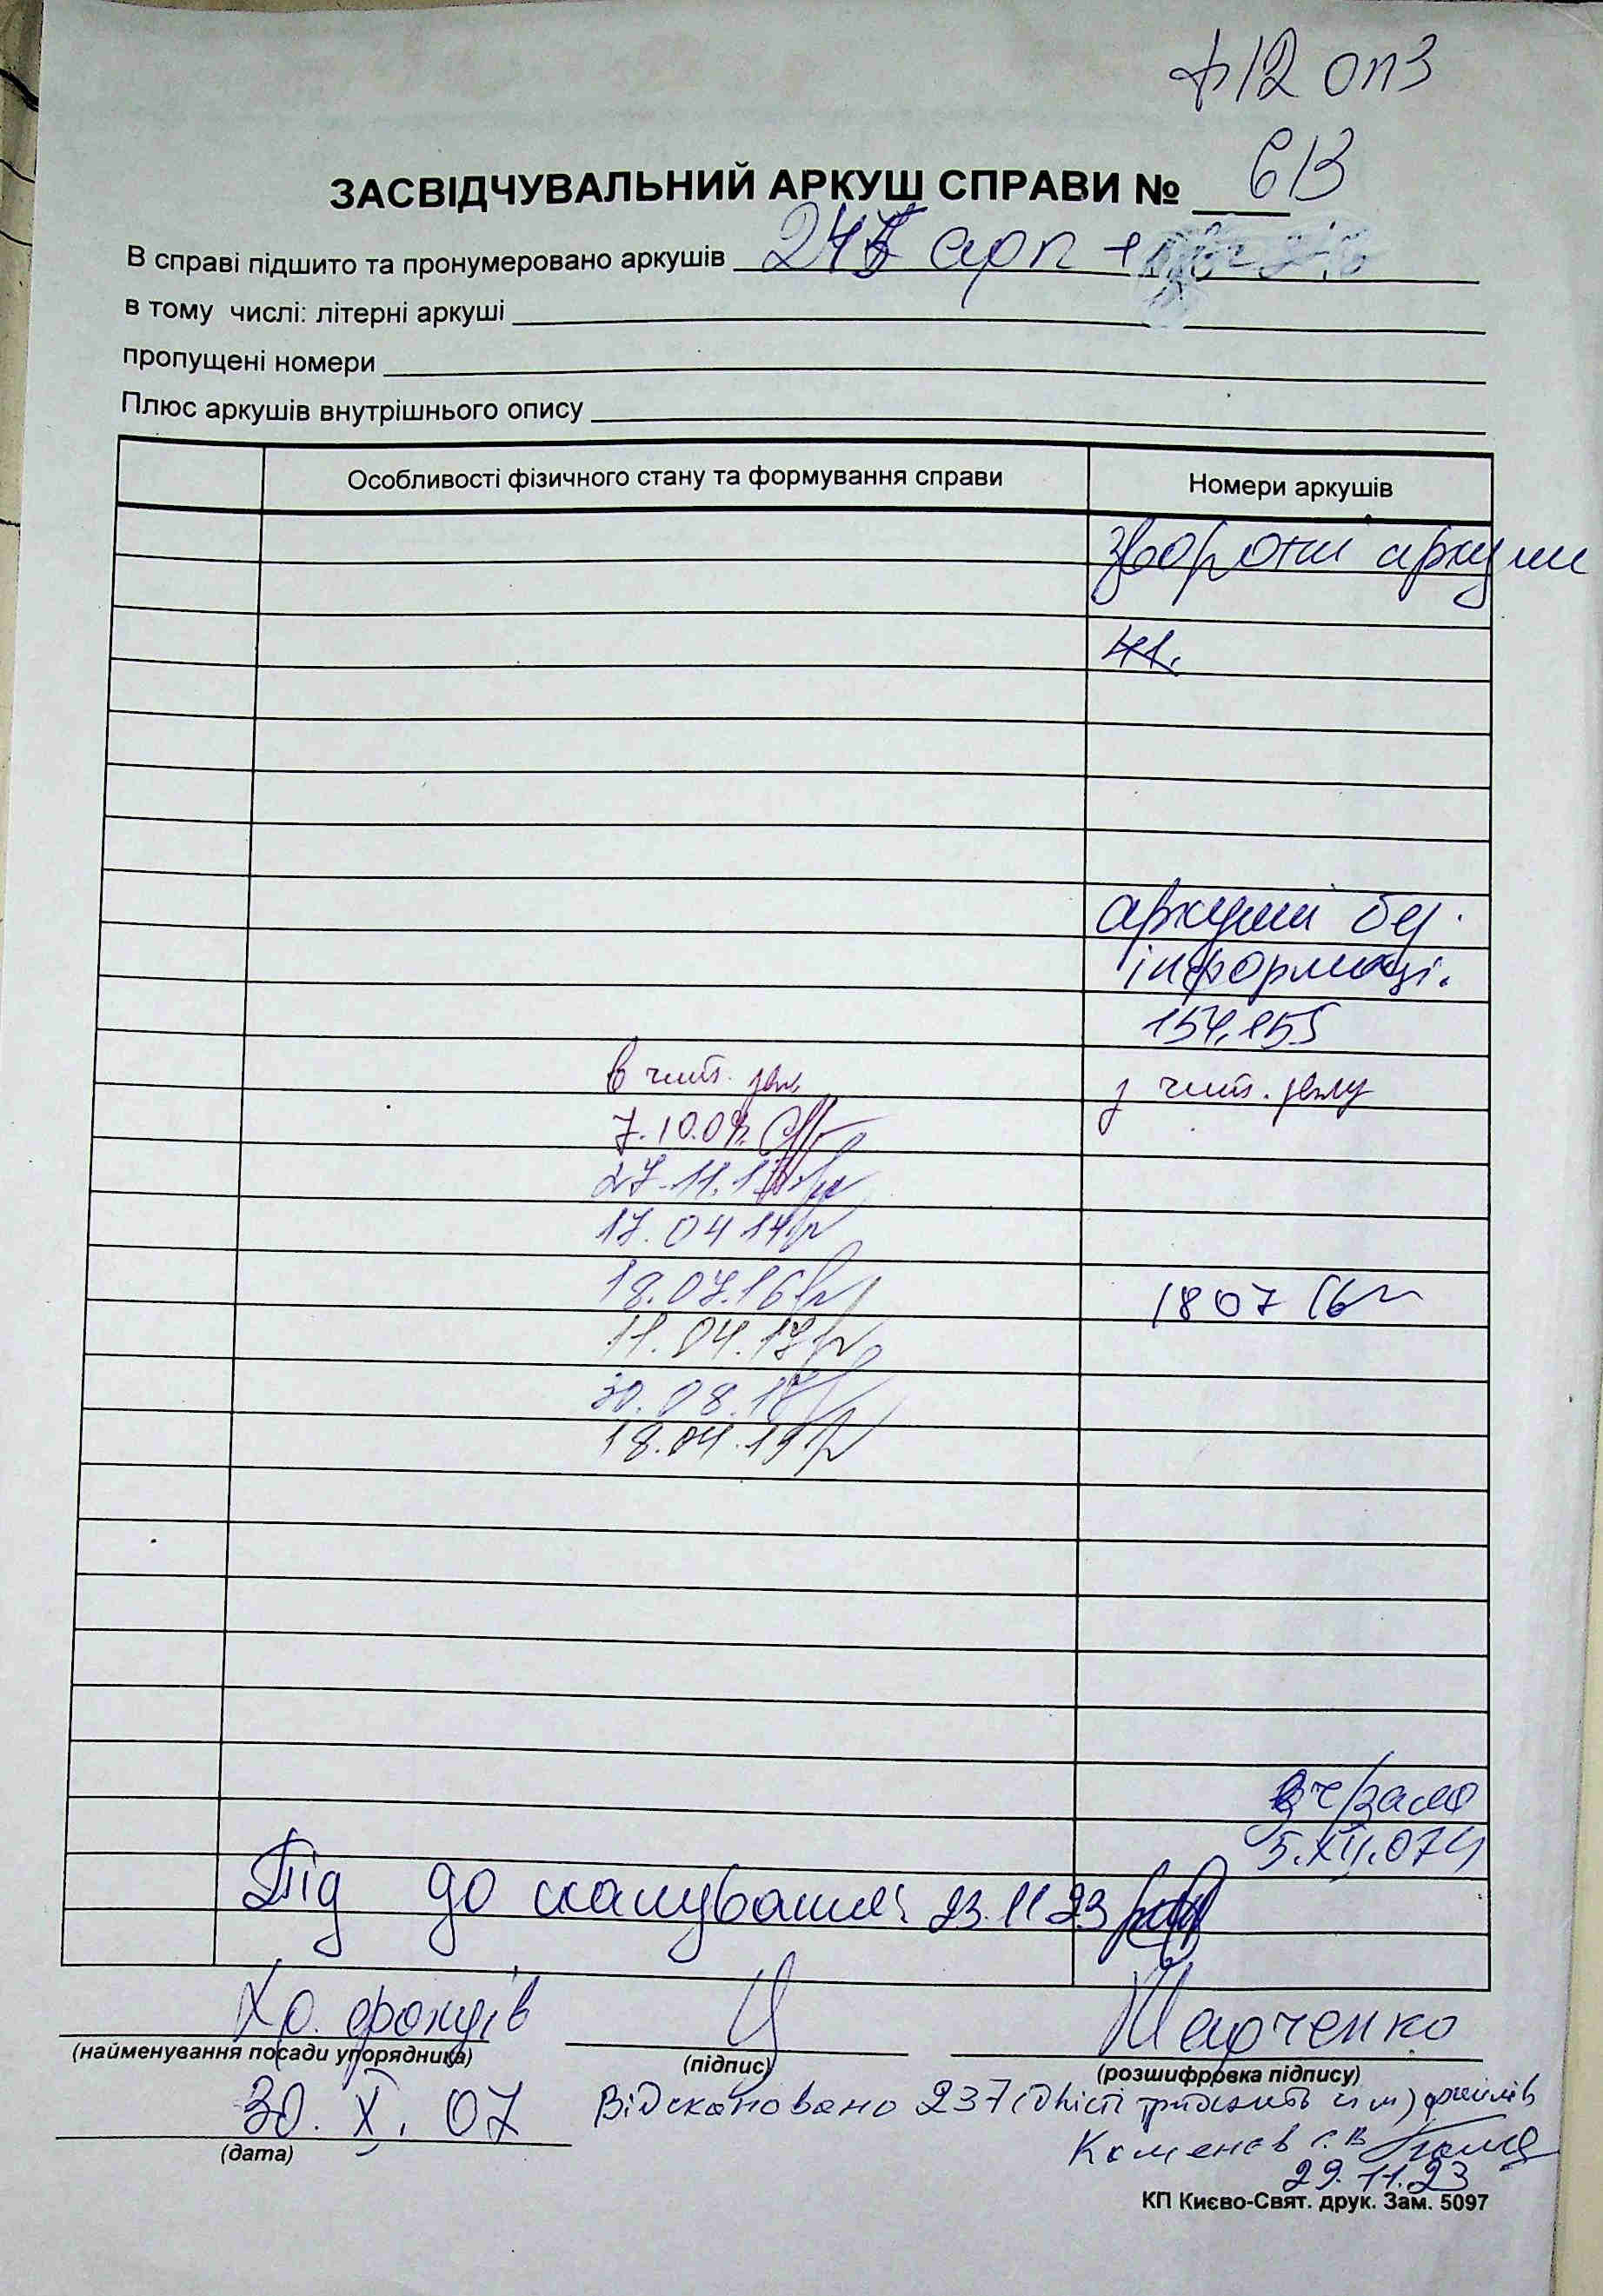 ф12 оп3
ЗАСВІДЧУВАЛЬНИЙ АРКУШ СПРАВИ № 613
В справі підшито та пронумеровано аркушів арк +
в тому числі: літерні аркуші
пропущені номери
Плюс аркушів внутрішнього опису
Особливості фізичного стану та формування справи Номери аркушів
зворотні аркуши
41.
аркуші без
інформації.
154,155
в чит. зал з чит. залу
7.10.09
27.11.13
17.04 14
18.07.16 18 07 16
11.04.17
30.08.17
18.04.19
з ч/залу
5.XII.07
Під до сканування 23.11 23
Хр. фондів Марченко
(найменування посади упорядника) (підпис) (розшифровка підпису)
30. X. 07 Відскановано 237 (двісті тридцять сім) файлів
(дата) Каменєв С.В
29.11.23
КП Києво-Свят. друк. Зам. 5097